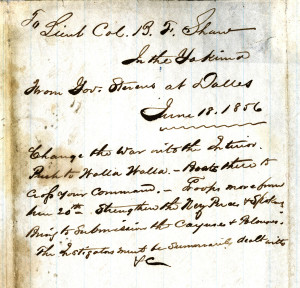 To
Lieut Col. B. F. Shaw
In the Yakima
From Gov. Stevens at Dalles
June 18. 1856
Change the War into the Interior.
Push to Walla Walla. - Boats there to
cross your Command. - Troops move from
here 20th Strengthen the Nez Perces & Spokan
Bring to Submission the Cayuses & Pelouses.
The Instigators must be Summarily dealt with
&C